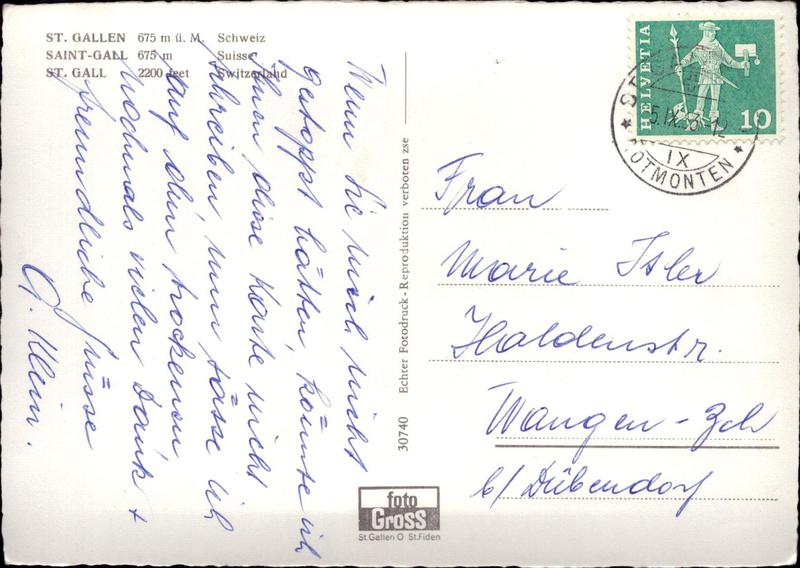 ST. GALLEN 675 m ü. M. Schweiz
SAINT-GALL 675 m Suisse
ST. GALL 2200 feet Switzerland
Wenn Sie mich nicht
gestoppt hätten, könnte ich
Ihnen diese Karte nicht
schreiben, nun sässe ich
auf dem trockenen
Nochmals vielen Dank +
freundliche Grüsse
G. Klein.
30740 Echter Fotodruck - Reproduktion verboten zse
foto
Gross
St.Gallen O St.Fiden
HELVETIA
10
IX
ROTMONTEN
Frau
Marie Isler
Haldenstr.
Wangen-Zch
b/ Dübendorf